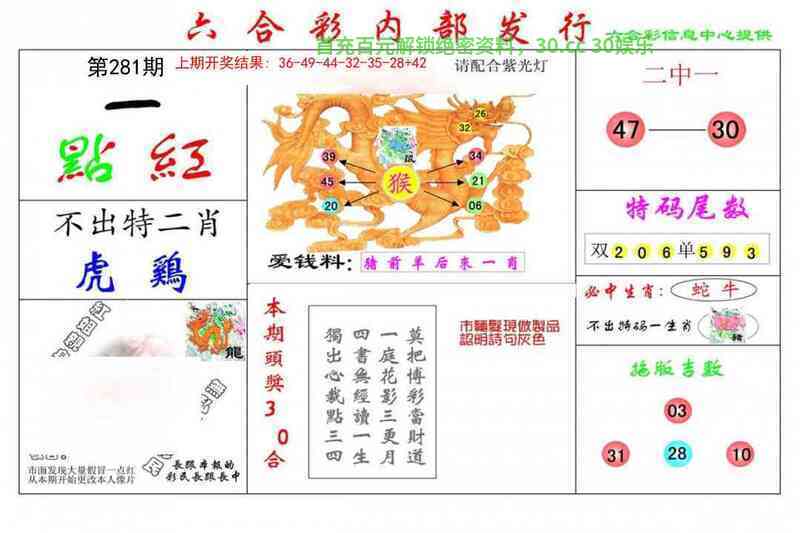 六合彩内部发行
首充百元解锁绝密资料，30.cc 30娱乐
六合彩信息中心提供
第281期
上期开奖结果：36-49-44-32-35-28+42
请配合紫光灯
一
點 紅
不出特二肖
虎 鷄
龍
市面发现大量假冒一点红
从本期开始更改本人像片
長跟本報的
彩民長跟長中
26
32
鼠
39
34
45
猴
21
20
06
爱钱料：
猪前羊后来一肖
本期頭獎30合
莫把博彩當財道
一庭花影三更月
四書無經讀一生
獨出心裁點三四
市麵髮現倣製品
認明詩句灰色
二中一
47
30
特码尾数
双206单593
必中生肖：
蛇牛
不出特码一生肖
豬
拖版吉数
03
31
28
10